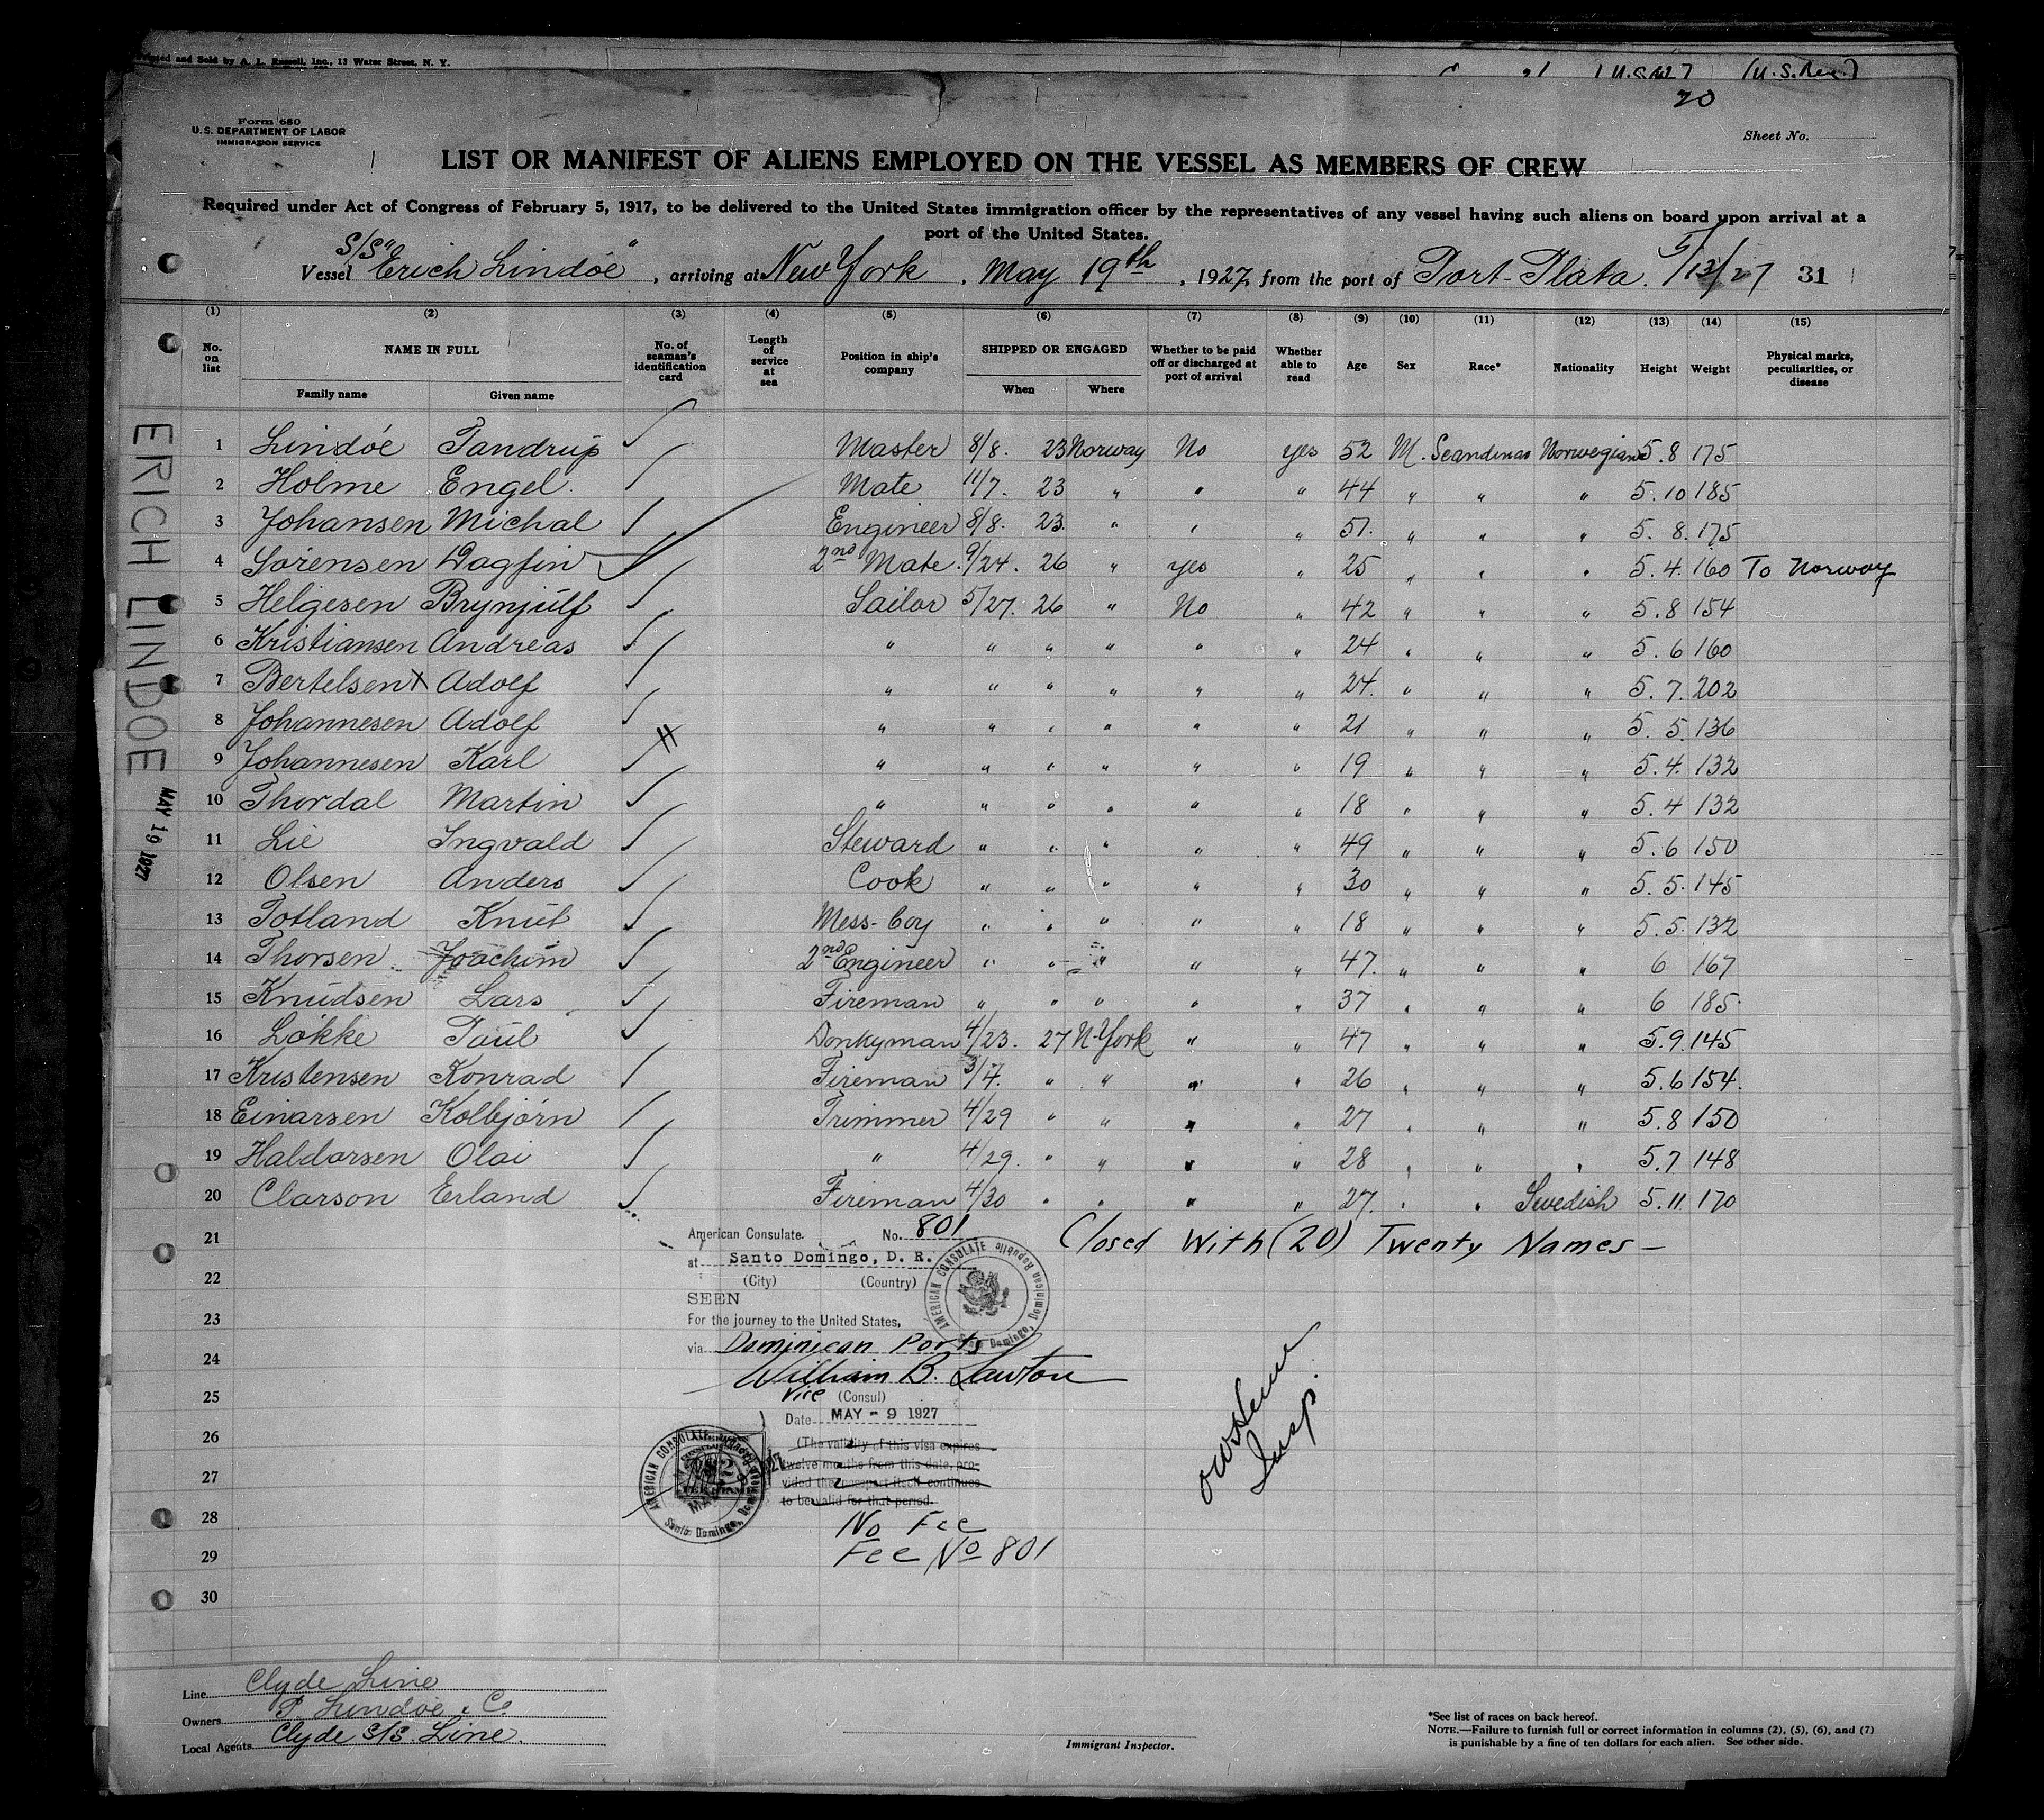 Printed and Sold by A. L. Russell, Inc., 13 Water Street, N. Y.
(U.S. Rec.)
20
Form 680
U.S. DEPARTMENT OF LABOR
IMMIGRATION SERVICE
Sheet No.
LIST OR MANIFEST OF ALIENS EMPLOYED ON THE VESSEL AS MEMBERS OF CREW
Required under Act of Congress of February 5, 1917, to be delivered to the United States immigration officer by the representatives of any vessel having such aliens on board upon arrival at a
port of the United States.
Vessel S/S "Erich Lindöe", arriving at New York, May 19th, 1927, from the port of Port-Plata. 5/13/27 31
(1) (2) (3) (4) (5) (6) (7) (8) (9) (10) (11) (12) (13) (14) (15)
No. on list NAME IN FULL Family name Given name No. of seaman's identification card Length of service at sea Position in ship's company SHIPPED OR ENGAGED When Where Whether to be paid off or discharged at port of arrival Whether able to read Age Sex Race* Nationality Height Weight Physical marks, peculiarities, or disease
1 Lindóe Tandrup Master 8/8. 23 Norway No yes 52 M. Scandinav Norwegian 5.8 175
2 Holme Engel. Mate 11/7. 23 " " " 44 " " " 5.10 185
3 Johansen Michal Engineer 8/8. 23. " " " 51. " " " 5. 8. 175
4 Sorensen Dagfin 2nd Mate. 9/24. 26 " yes " 25 " " " 5.4. 160 To Norway
5 Helgesen Brynjulf Sailor 5/27. 26 " No " 42 " " " 5.8 154
6 Kristiansen Andreas " " " " " " 24 " " " 5.6 160
7 Bertelsen X Adolf " " " " " " 24. " " " 5.7. 202
8 Johannesen Adolf " " " " " " 21 " " " 5.5. 136
9 Johannesen Karl " " " " " " 19 " " " 5.4. 132
10 Thordal Martin " " " " " " 18 " " " 5.4 132
11 Lie Ingvald Steward " " " " " 49 " " " 5.6 150
12 Olsen Anders Cook " " " " " 30 " " " 5.5. 145
13 Totland Knut Mess-boy " " " " " 18 " " " 5.5. 132
14 Thorsen Joachim 2nd Engineer " " " " " 47. " " " 6 167
15 Knudsen Lars Fireman " " " " " 37 " " " 6 185
16 Lókke Paul Donkyman 4/23. 27 N-York " " 47 " " " 5.9. 145
17 Kristensen Konrad Fireman 3/7. " " " " 26 " " " 5.6 154.
18 Einarsen Kolbjórn Trimmer 4/29 " " " " 27 " " " 5.8 150
19 Haldorsen Olai " 4/29. " " " " 28 " " " 5.7 148
20 Clarson Erland Fireman 4/30 " " " " 27. " " Swedish 5.11. 170
21 Closed With (20) Twenty Names —
22
23
24
25
26
27
28
29
30
American Consulate. No. 801
at Santo Domingo, D. R.
(City) (Country)
SEEN
For the journey to the United States,
via Dominican Ports
William B. Lawton
Vice (Consul)
Date MAY - 9 1927
(The validity of this visa expires
twelve months from this date, pro-
vided the passport itself continues
to be valid for that period.
No Fee
Fee No 801
AMERICAN CONSULATE Santo Domingo, Dominican Republic
AMERICAN CONSULATE Santo Domingo, Dominican Republic
Insp.
ERICH LINDOE
MAY 19 1927
Line Clyde Line
Owners P. Lindöe & Co
Local Agents Clyde S/S. Line.
Immigrant Inspector.
*See list of races on back hereof.
NOTE.—Failure to furnish full or correct information in columns (2), (5), (6), and (7)
is punishable by a fine of ten dollars for each alien. See other side.